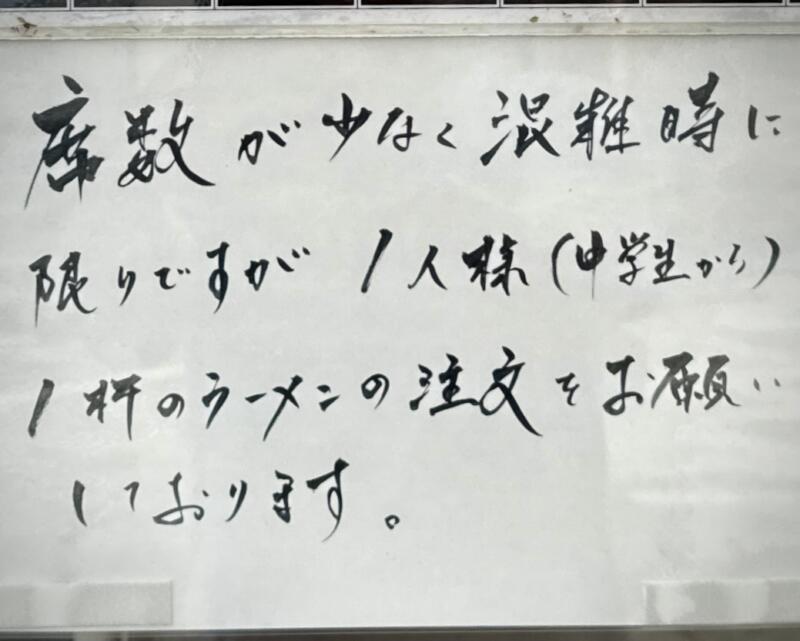 席数が少なく混雑時に
限りですが 1人様(中学生から)
1杯のラーメンの注文をお願い
しております。